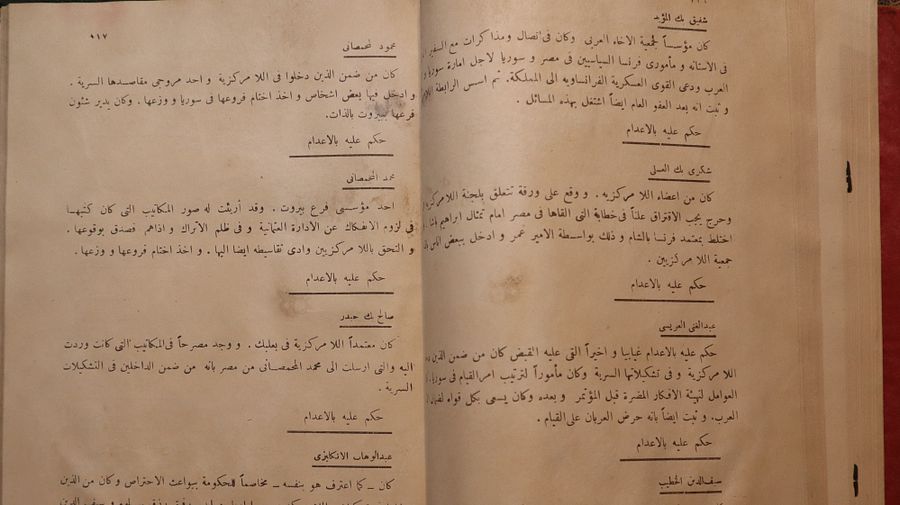 شفيق بك المؤيد
كان مؤسساً لجمعية الاخاء العربي وكان فى اتصال ومذاكرات مع السفير
فى الاستانه و مأمودى فرنسا السياسيين فى مصر و سوريا لاجل امارة سوريا و
العرب ودعى القوى العسكرية الفرانساويه الى المملكة. ثم اسس الرابطة
و ثبت انه بعد العفو العام ايضاً اشتغل بهذه المسائل .
حكم عليه بالاعدام
شكرى بك العسلى
كان من اعضاء اللا مركزيه . و وقع على ورقة تتعلق بلجنة اللامركزية
وحرج يجب الافتراق علناً فى خطابة التى القاها فى مصر امام تمثال ابراهيم باشا
اختلط بمعتمد فرنسا بالشام و ذلك بواسطة الامير عمر و ادخل ببعض
جمعية اللا مركزيين .
حكم عليه بالاعدام
عبدالغنى العريسى
حكم عليه بالاعدام غيابيا و اخيراً التى عليه القبض كان من ضمن الذين
اللا مركزية و فى تشكيلاتها السرية وكان مأموراً لترتيب امر القيام فى سوريا.
العوامل لتهيئة الافكار المضرة قبل المؤتمر و بعده وكان يسعى بكل قواه
العرب. و ثبت ايضاً بانه حرض العربان على القيام .
حكم عليه بالاعدام
سيف الدين الخطيب
١١٧
محمود لمحمصانى
كان من ضمن الذين دخلوا فى اللا مركزية و احد مروجى مقاصدها السرية .
و ادخل فيها بعض اشخاص و اخذ اختام فروعها فى سوريا و وزعها . وكان يدير شئون
فرعها ببيروت بالذات.
حكم عليه بالاعدام
محمد المحمصانى
احد مؤسسى فرع بيروت . وقد أريئت له صور المكاتيب التى كان كتبها
فى لزوم الانفكاك عن الادارة العثمانية و فى ظلم الاتراك و اذاهم فصدق بوقوعها .
و التحق باللا مركزيين وادى تقاسيطه ايضا اليها . و اخذ اختام فروعها و وزعها .
حكم عليه بالاعدام
صالح بك حيدر
كان معتمداً اللا مركزية فى بعلبك . و وجد مصرحاً فى المكاتيب التى كانت وردت
اليه والتى ارسلت الى محمد المحمصانى من مصر بانه من ضمن الداخلين فى التشكيلات
السرية .
حكم عليه بالاعدام
عبدالوهاب الانكليزى
كان _ كما اعترف هو بنفسه _ مخاصماً للحكومة ببواعث الاحتراص وكان من الذين